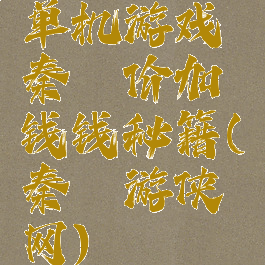 单机游戏
秦 价加
钱钱秘籍(
秦 游侠
网)